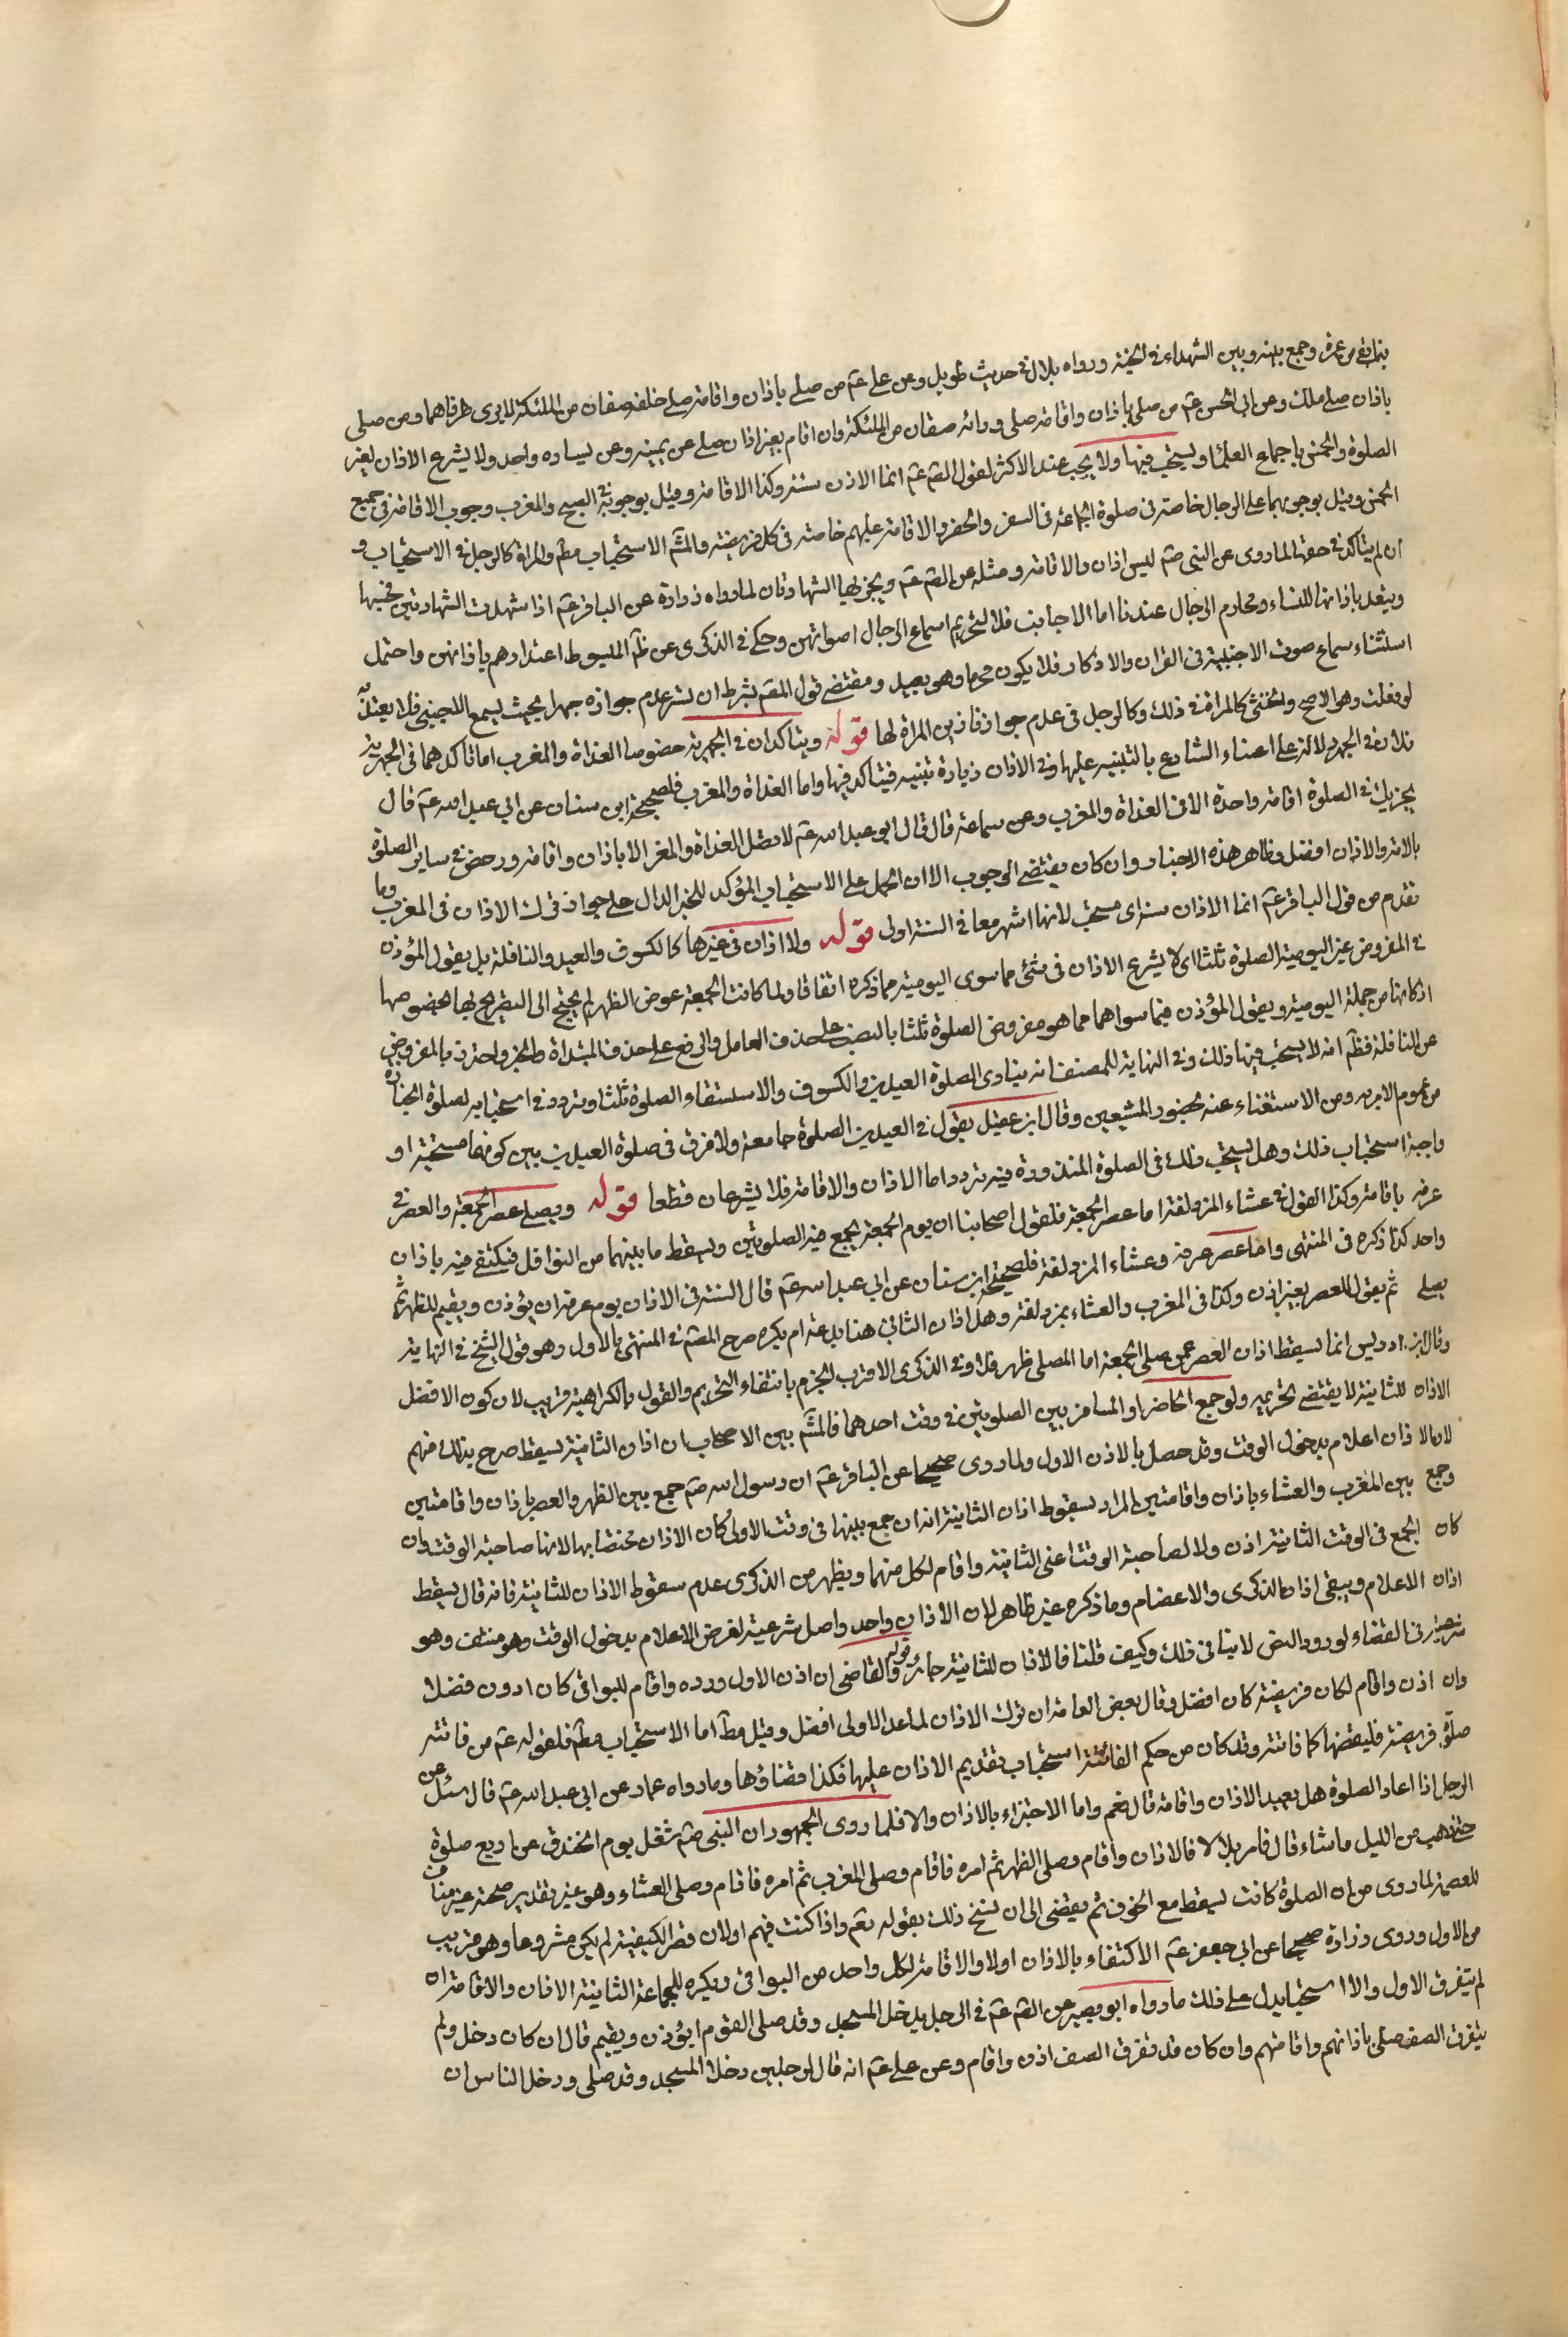 بنمابقى من عمره وجمع بينه وبين الشهداء فى الجنة ورواه بلال فى حديث طويل وعن على عم من صلى باذان واقامة صلى خلفه صفان من الملئكة لايرى طرفاهما ومن صلى
باذان صلى ملك وعن ابى الحسن عم من صلى باذان واقامة صلى ورائه صفان من الملئكة وان اقام بغير اذان صلى عن يمينه وعن يساره واحد ولا يشرع الاذان لغير
الصلوة والخمس باجماع العلماء ويستحب فيها ولا يجب عند الاكثر لقول القم عم انما الاذن سنة وكذا الاقامة وقيل بوجوبه فى الصبح والمغرب وجوب الاقامة فى جميع
الخمس وقيل بوجوبهما على الرجال خاصة فى صلوة الجماعة فى السفر والحضر والاقامة عليهم خاصة فى كل فريضة والمشم الاستحباب مطم والمراة كالرجل فى الاستحباب و
ان لم يتاكد فى حقها لما روى عن النبى صم ليس اذان والاقامة ومثله عن القم عم ويجزيها الشهادتان لما رواه زرارة عن الباقر عم اذا شهدت الشهادتين فحسبها
ويعتد باذانها للنساء ومحارم الرجال عندنا اما الاجانب فلا لتحريم اسماع الرجال اصواتهن وحكى فى الذكرى عن ظم المبسوط اعتدادهم باذانهن واحتمل
استثناء سماع صوت الاجنبية فى القران والاذكار فلا يكون محرما وهو بعيد ومقتضى قول المقم بشرط ان تسر عدم جوازه جهرا بحيث يسمع الاجنبى فلا يعتد به
لو فعلت وهو الاصح والخنثى كالمراة فى ذلك وكالرجل فى عدم جواز تاذين المراة لها قوله ويتاكدان فى الجهرية خصوصا الغداة والمغرب اما تاكدهما فى الجهرية
فلان فى الجهر دلالة على اعتناء الشارع بالتنبيه عليها وفى الاذان زيادة تنبيه فيتاكد فيها واما الغداة والمغرب فلصحيحة ابن سنان عن ابى عبد الله عم قال
يجزيك فى الصلوة اقامة واحدة الا فى الغداة والمغرب وعن سماعة قال قال ابو عبد الله عم لا تصل الغداة والمغرب الا باذان واقامة ورخص فى ساير الصلوة
بالامة والاذان افضل وظاهر هذه الاخبار وان كان يقتضى الوجوب الا ان الحمل على الاستحباب المؤكد للخبر الدال على جواز ترك الاذان فى المغرب وما
تقدم من قول الباقر عم انما الاذان سنة اى مستحب لانها اشهر معا فى السنة اولى قوله ولا اذان فى غيرها كالكسوف والعيد والنافلة بل يقول المؤذن
فى المفروض غير اليومية الصلوة ثلثا اى لا يشرع الاذان فى شئ مما سوى اليومية مما ذكره اتفاقا ولما كانت الجمعة عوض الظهر لم يحتج الى التصريح بها لخصوصها
اذ كانها من جملة اليومية ويقول المؤذن فيما سواهما مما هو مفروض الصلوة ثلثا بالنصب على حذف العامل والرفع على حذف المبتداة والخبر واحترز بالمفروض
عن النافلة فظم انه لا يستحب فيها ذلك وفى النهاية للمصنف انه ينادى لصلوة العيدين والكسوف والاستسقاء الصلوة ثلثا وتردد فى استحبابه لصلوة الجنازة
من عموم الامر به ومن الاستغناء عنه بحضور المشيعين وقال ابن عقيل يقول فى العيدين الصلوة جامعة ولا فرق فى صلوة العيدين بين كونهما مستحبة او
واجبة استحباب ذلك وهل يستحب ذلك فى الصلوة المنذورة فيه تردد اما الاذان والاقامة فلا يشرعان قطعا قوله ويصلى عصر الجمعة والعصر فى
عرفه باقامة وكذا القول فى عشاء المزدلفة اما عصر الجمعة فلقول اصحابنا ان يوم الجمعة يجمع فيه الصلوتين ويسقط ما بينهما من النوافل فيكتفى فيه باذان
واحد كذا ذكره فى المنتهى واما عصر عرفة وعشاء المزدلفة فلصحيحة ابن سنان عن ابى عبد الله عم قال السنة فى الاذان يوم عرفة ان يؤذن ويقيم للظهر ثم
يصلى ثم يقول للعصر بغير اذن وكذا فى المغرب والعشاء بمزدلفة وهل اذان الثانى هنا بدعة ام يكره صرح المقم فى المنتهى بالاول وهو قول الشيخ فى النهاية
وقال ابن ادريس انما يسقط اذان العصر عمن صلى الجمعة اما المصلى ظهر فلا وفى الذكرى الاقرب الجزم بانتفاء التحريم والقول بالكراهية قريب لان كون الافضل
الاذان للثانية لا يقتضى تحريمه ولو جمع الحاضر او المسافر بين الصلوتين فى وقت احدهما فالمشم بين الاصحاب ان اذان الثانية يسقط صرح بذلك منهم
لان الاذان اعلام بدخول الوقت وقد حصل بالاذن الاول ولما روى صحيحا عن الباقر عم ان رسول الله صم جمع بين الظهر والعصر باذان واقامتين
وجمع بين المغرب والعشاء باذان واقامتين المراد بسقوط اذان الثانية انه ان جمع بينهما فى وقت الاولى كان الاذان مختصا بها لانها صاحبة الوقت وان
كان الجمع فى الوقت الثانية اذن ولا لصاحبة الوقت اعنى الثانية واقام لكل منهما ويظهر من الذكرى عدم سقوط الاذان للثانية فانه قال يسقط
اذان الاعلام ويبقى اذان الذكرى والاعضام وما ذكره غير ظاهر لان الاذان واحد واصل شرعيته لغرض الاعلام بدخول الوقت وهو منتف وهو
شرعيته فى القضاء لورود النص لا ينافى ذلك وكيف قلنا فالاذان للثانية جائز قوله والقاضى ان اذن الاول ورده واقام للبواقى كان ادون فضلا
وان اذن واقام لكل فريضة كان افضل وقال بعض العامة ان ترك الاذان لما عدا الاولى افضل وقيل مطم اما الاستحباب مطم فلقوله عم من فاتته
صلوة فريضة فليقضها كما فاتته وقد كان من حكم الفائتة استحباب تقديم الاذان عليها فكذا قضاؤها وما رواه عمار عن ابى عبد الله عم قال سئل عن
الرجل اذا اعاد الصلوة هل يعيد الاذان واقامة قال نعم واما الاجتزاء بالاذان والا فلما روى الجمهور ان النبى صم شغل يوم الخندق عن اربع صلوة
حتى ذهب من الليل ما شاء قال فامر بلالا فالاذان واقام وصلى الظهر ثم امره فاقام وصلى المغرب ثم امره فاقام وصلى العشاء وهو غير بتقدير صحته غير مناف
للعصمة لما روى من ان الصلوة كانت يسقط مع الخوف ثم يقضى الى ان نسخ ذلك بقوله تعم واذا كنت فيهم اولان قصر الكيفية لم يكن مشروعا وهو قريب
من الاول وروى زرارة صحيحا عن ابى جعفر عم الاكتفاء بالاذان اولا والاقامة لكل واحد من البواقى ويكره للجماعة الثانية الاذان والاقامة ان
لم يتفرق الاول والا استحبا يدل على ذلك ما رواه ابو بصير عن القم عم فى الرجل يدخل المسجد وقد صلى القوم ايؤذن ويقيم قال ان كان دخل ولم
يتفرق الصف صلى باذانهم واقامتهم وان كان قد تفرق الصف اذن واقام وعن على عم انه قال لرجلين دخلا المسجد وقد صلى ودخل الناس ان